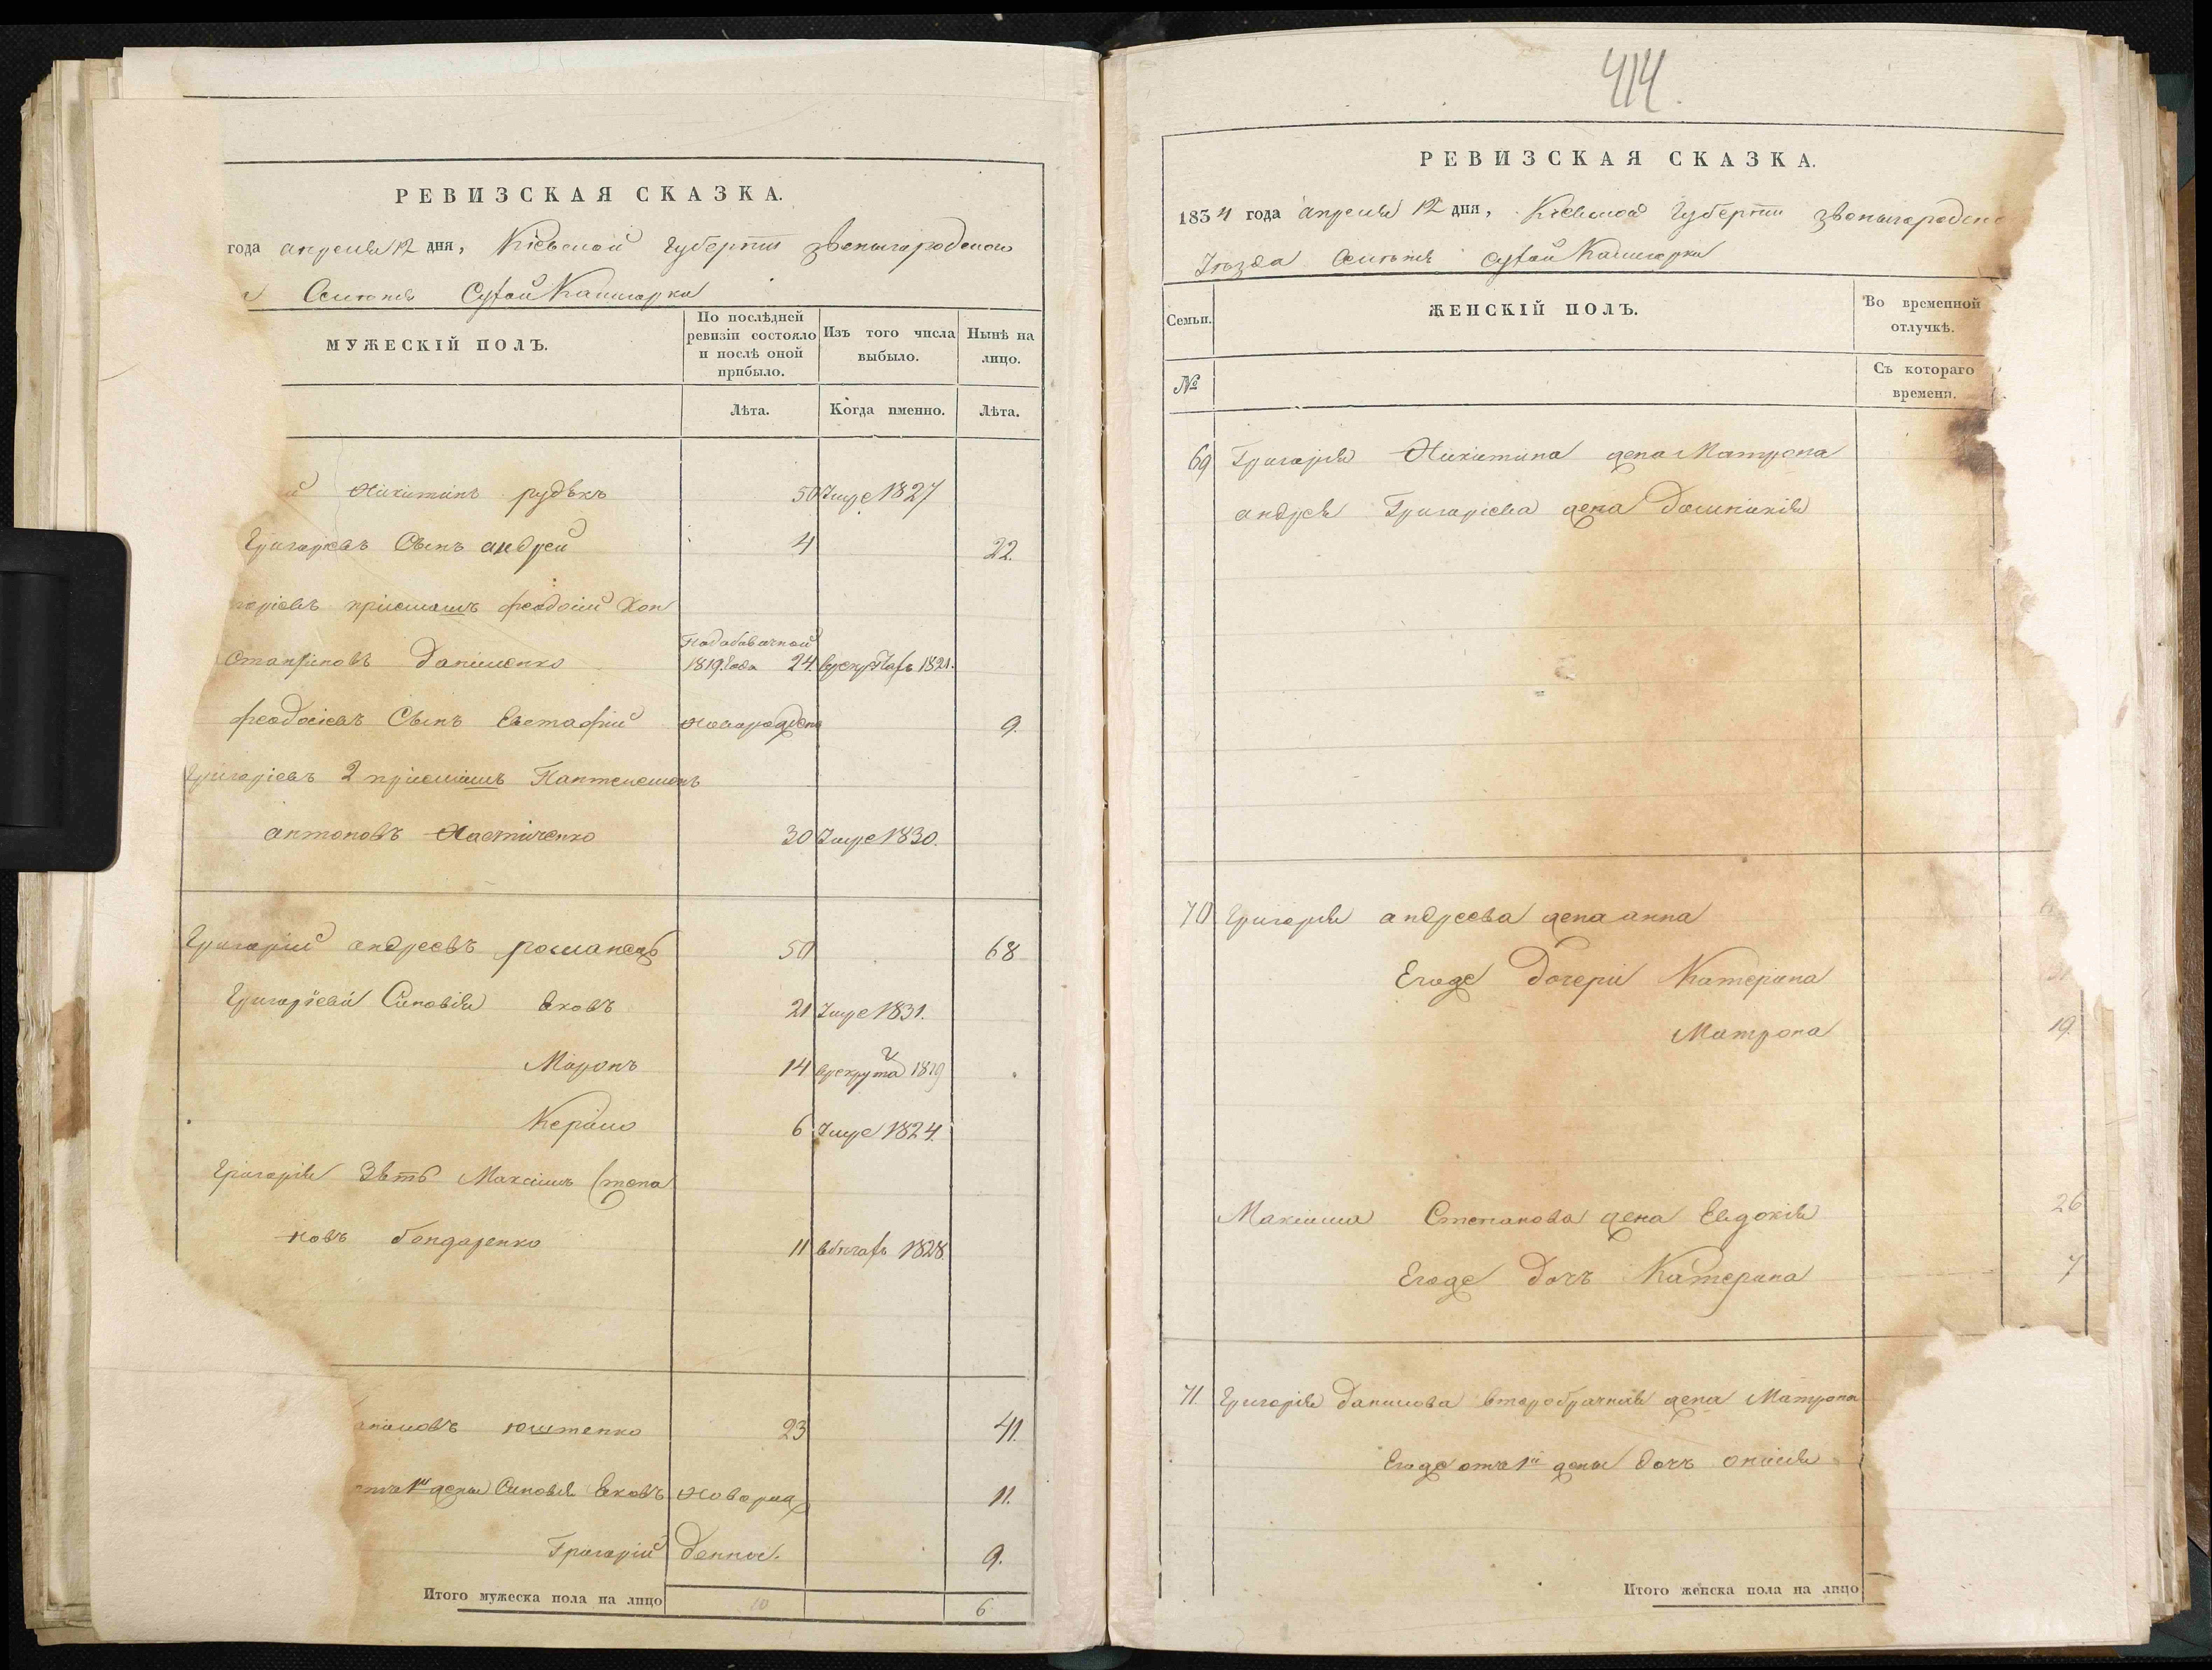 РЕВИЗСКАЯ СКАЗКА.
года апреля 12 дня, Кіевской Губерніи звенигородского
Селенія Сухой Калигорки
МУЖЕСКІЙ ПОЛЪ.
По послѣдней ревизіи состояло и послѣ оной прибыло.
Изъ того числа выбыло.
Нынѣ на лицо.
Лѣта.
Когда именно.
Лѣта.
Никитинъ рудѣкъ 50 Умре 1827
Григоріевъ Сынъ андрей 4 22.
горіевъ пріемышъ феодосій
Данименко 1819 года 24. 1821.
феодосіевъ Сынъ Евстафій новорожденъ 9.
Григоріевъ 2 пріемышъ Пантелемонъ
антоновъ 30 Умре 1830.
Григорій андреевъ романецъ 50 68
Григоріеви Синовія Яковъ 21 Умре 1831.
Миронъ 14 врекрута 1829
Керило 6 Умре 1824.
Григорія Зять Максимъ Степа
новъ бондаренко 11 вбегахъ 1828
юштенко 23 41.
жены Синовія Яковъ новорож 11.
Григорій денные. 9.
Итого мужеска пола на лицо 10 6
414.
РЕВИЗСКАЯ СКАЗКА.
1834 года апреля 12 дня, Кіевской Губерніи звенигородско
Уѣзда Селенія Сухой Калигорки
Семьи.
ЖЕНСКІЙ ПОЛЪ.
Во временной отлучкѣ.
№
Съ котораго времени.
69 Григорія Никитина жена Матрона
андрея Григоріева жена Домникія
70 Григорія андреева жена анна
Егоже дочери Катерина
Матрона 19.
Максима Степанова жена Евдокія 26
Егоже дочъ Катерина 7
71. Григорія Данилова второбрачная жена Матрона
Егоже отъ 1й жены дочъ
Итого женска пола на лицо